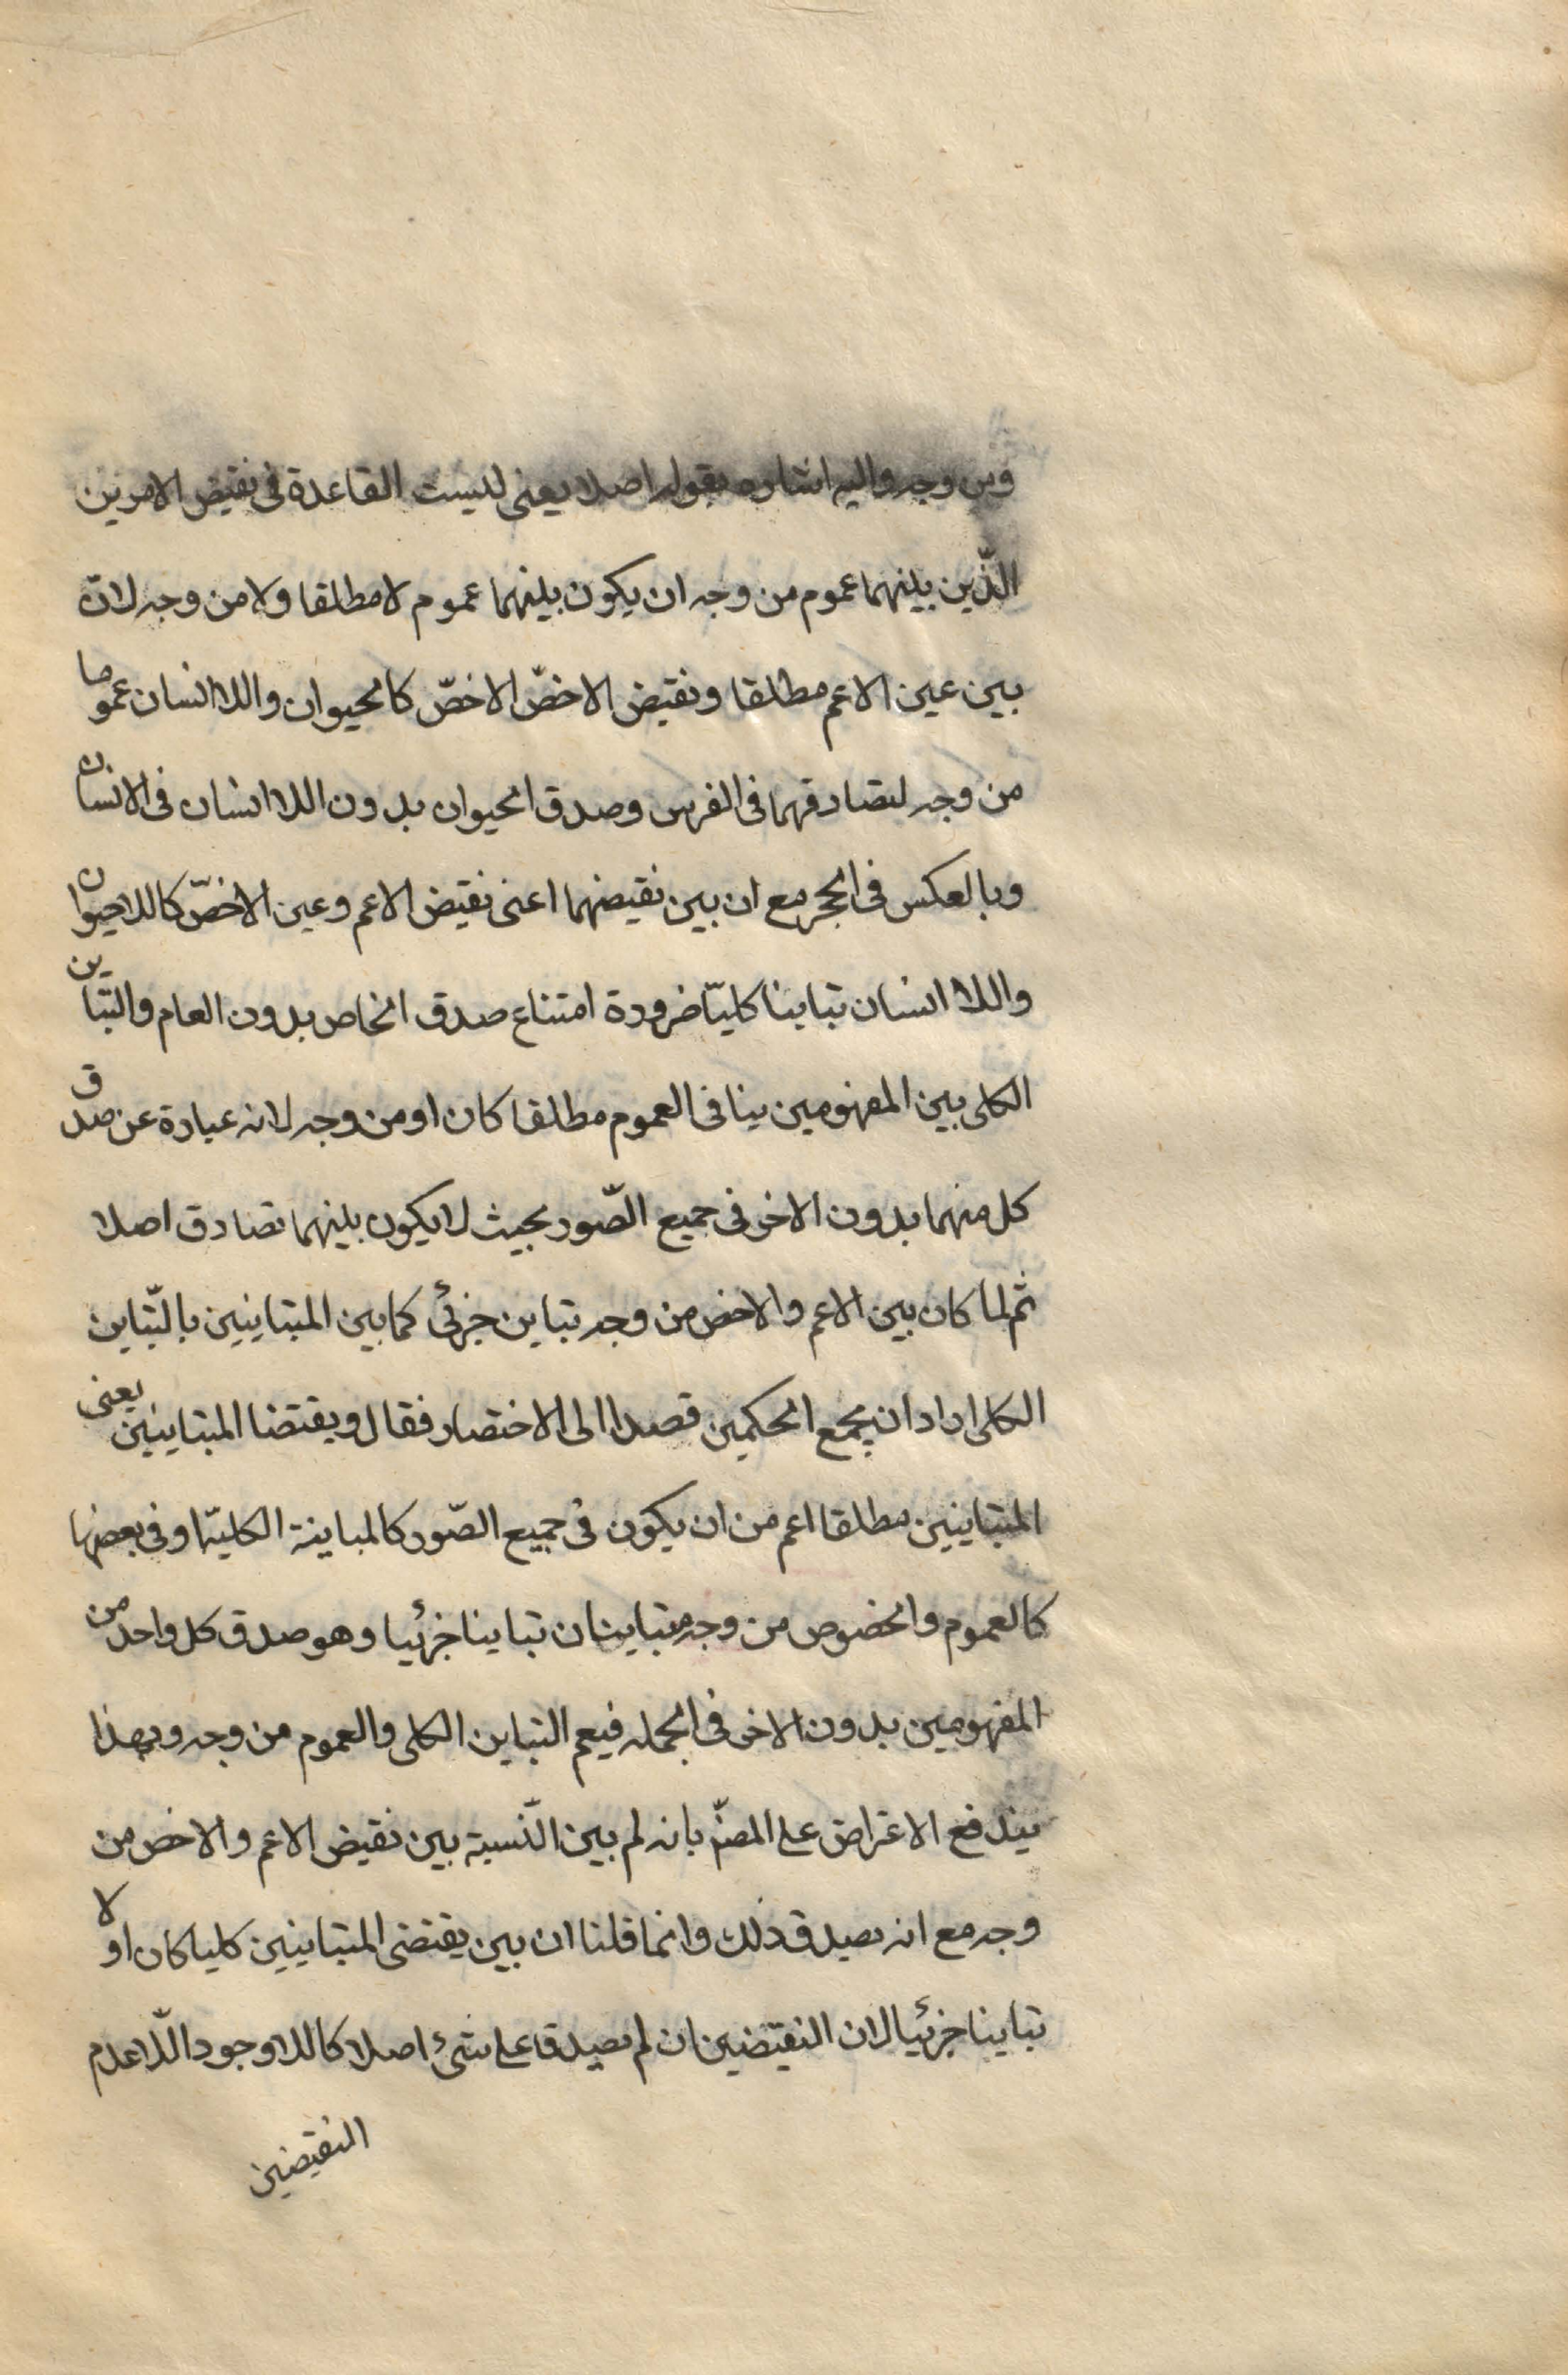 ومن وجه واليه اشاره بقوله اصلا يعنى ليست القاعدة فى نقيض الامرين
الذّين بينهما عموم من وجه ان يكون بينهما عموم لا مطلقا ولا من وجه لانّ
بين عين الاعم مطلقا ونقيض الاخصّ الاخصّ كالحيوان واللاانسان عموما
من وجه لتصادقهما فى الفرس وصدق الحيوان بدون اللاانسان فى الانسان
وبالعكس فى الحجر مع ان بين نقيضهما اعنى نقيض الاعم وعين الاخصّ كاللاحيوان
واللاانسان تباينا كليّا ضرورة امتناع صدق الخاص بدون العام والتباين
الكلى بين المفهومين ينافى العموم مطلقا كان او من وجه لانه عبارة عن صدق
كل منهما بدون الاخر فى جميع الصّور بحيث لا يكون بينهما تصادق اصلا
ثم لما كان بين الاعم والاخص من وجه تباين جزئى كما بين المتباينين بالتّباين
الكلى اراد ان يجمع الحكمين قصدا الى الاختصار فقال ويقتضا المتباينين يعنى
المتباينين مطلقا اعم من ان يكون فى جميع الصّور كالمباينة الكليّة او فى بعضها
كالعموم والخصوص من وجه متباينان تباينا جزئيا وهو صدق كل واحد من
المفهومين بدون الاخر فى الجمله فيعم التباين الكلى والعموم من وجه وبهذا
يندفع الاعتراض على المصنّ بانه لم يبين النّسبة بين نقيض الاعم والاخص من
وجه مع انه بصدق ذلك وانما قلنا ان بين يقتضى المتباينين كليا كان اولا
تباينا جزئيا لان النقيضين ان لم يصدقا على شئ اصلا كاللاوجود اللّاعدم
النقيضين